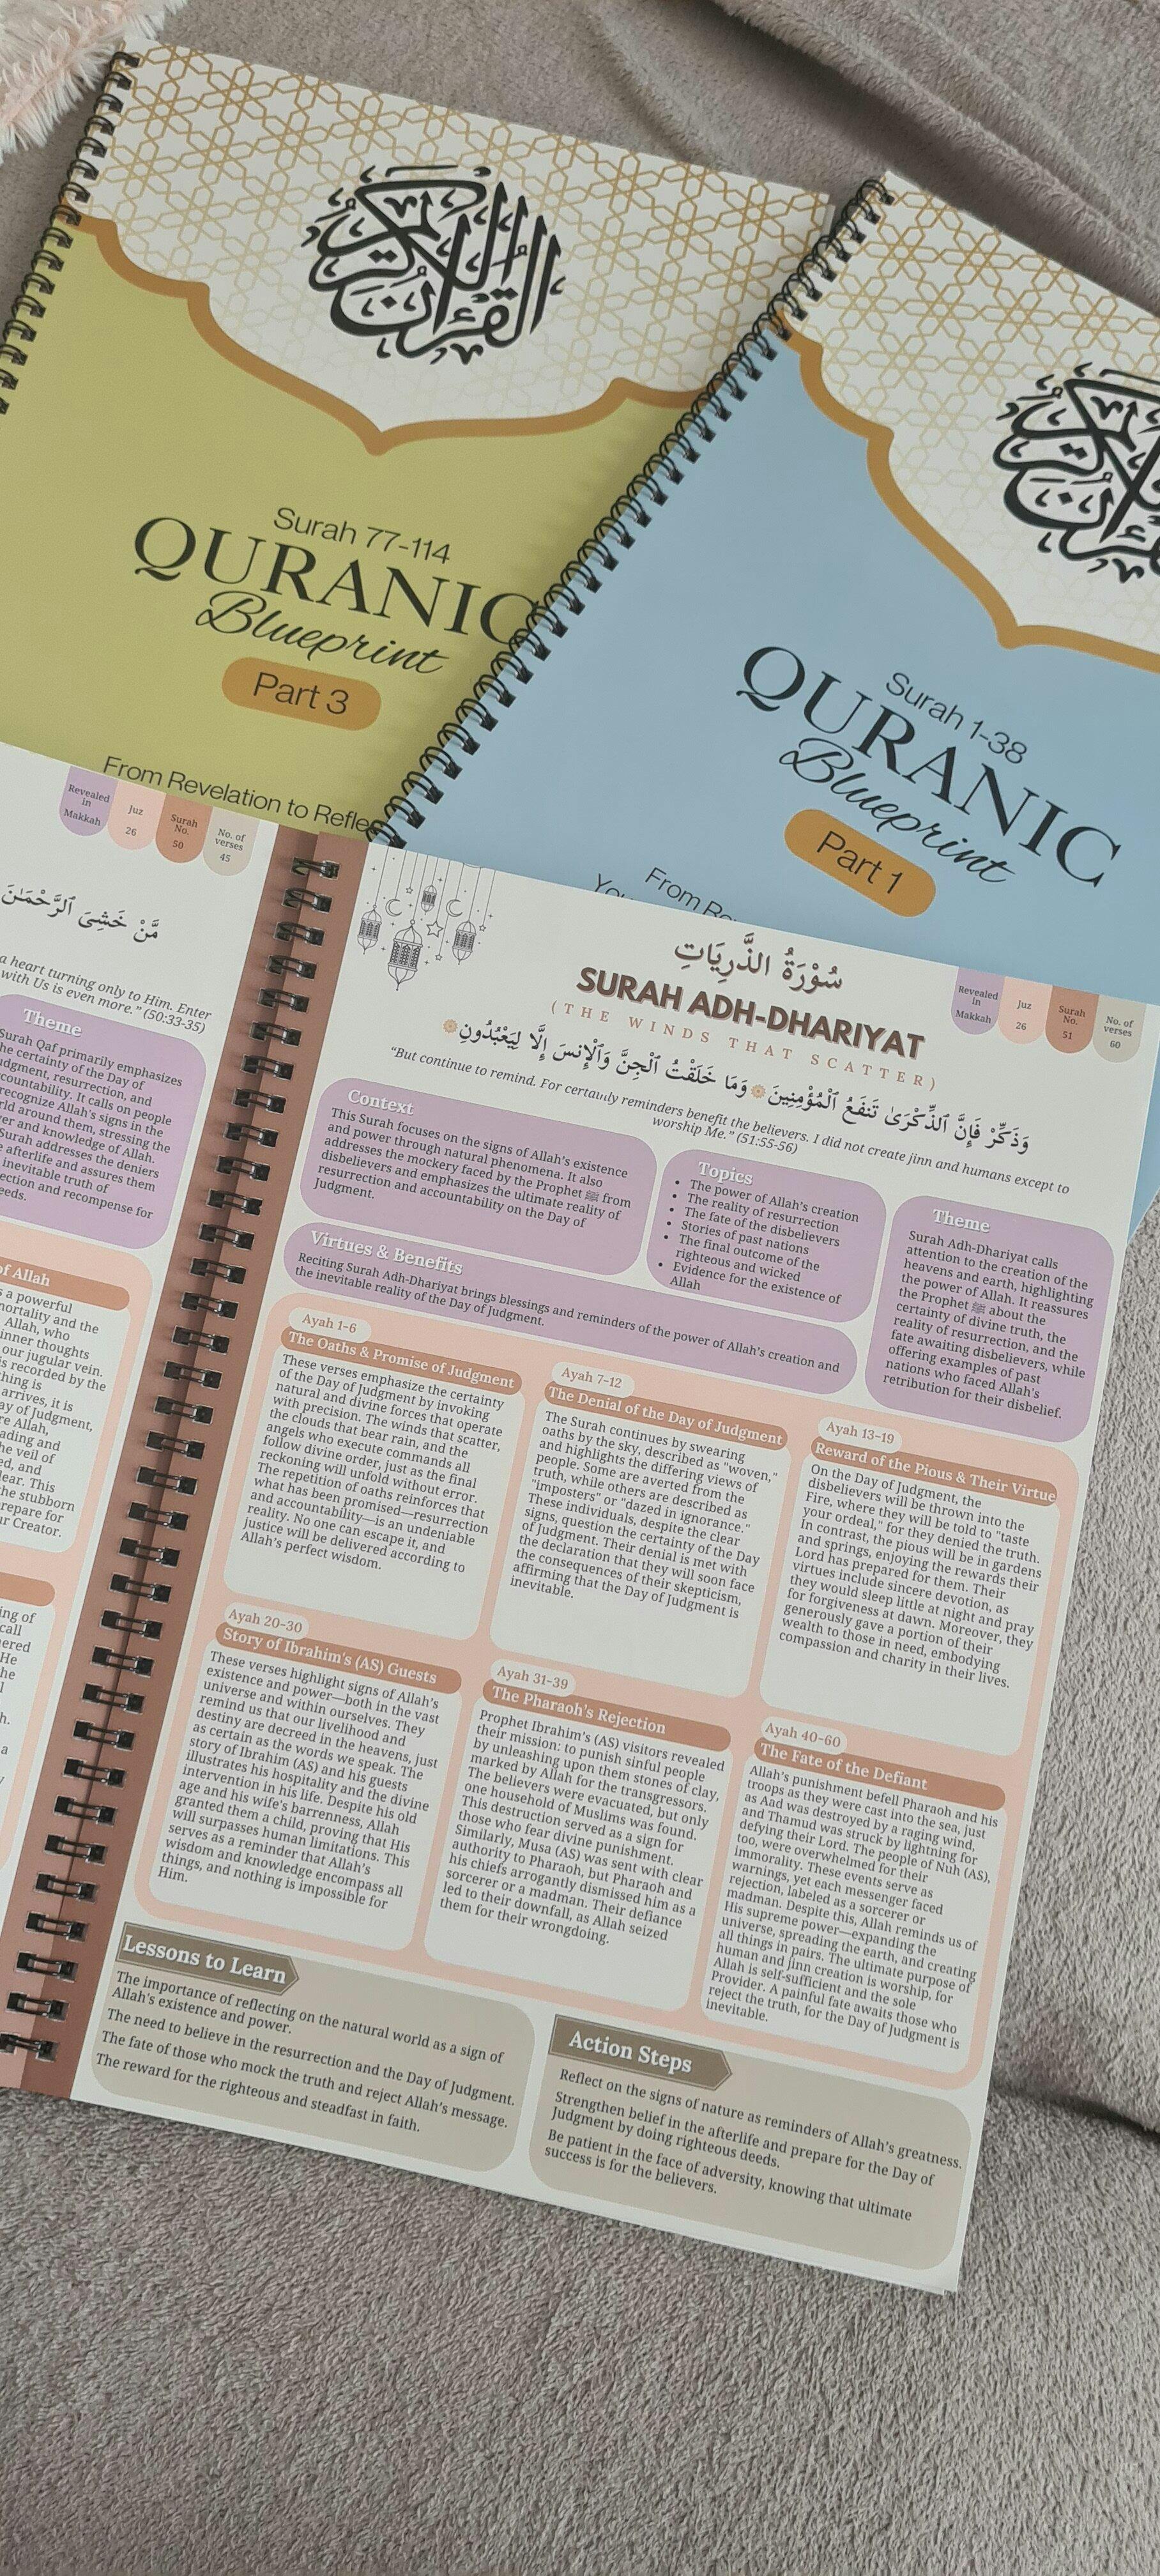 القرآن الكريم
Surah 77-114
QURANIC
Blueprint
Part 3
From Revelation to
Surah 1-38
QURANIC
Blueprint
Part 1
From
Revealed
in
Makkah
Juz
26
Surah
No.
50
No. of
verses
45
مَّنْ خَشِىَ ٱلرَّحْمَـٰنَ
a heart turning only to Him. Enter
with Us is even more.” (50:33-35)
Theme
Surah Qaf primarily emphasizes
the certainty of the Day of
judgment, resurrection, and
accountability. It calls on people
recognize Allah's signs in the
around them, stressing the
and knowledge of Allah.
Surah addresses the deniers
afterlife and assures them
inevitable truth of
and recompense for
of Allah
a powerful
and the
Allah, who
inner thoughts
our jugular vein.
is recorded by the
arrives, it is
of Judgment,
Allah,
and
veil of
and
This
the stubborn
prepare for
Creator.
of
call
He
a
سُوْرَةُ الذَّرِيَاتِ
SURAH ADH-DHARIYAT
(THE WINDS THAT SCATTER)
Revealed
in
Makkah
Juz
26
Surah
No.
51
No. of
verses
60
وَذَكِّرْ فَإِنَّ ٱلذِّكْرَىٰ تَنفَعُ ٱلْمُؤْمِنِينَ وَمَا خَلَقْتُ ٱلْجِنَّ وَٱلْإِنسَ إِلَّا لِيَعْبُدُونِ
“But continue to remind. For certainly reminders benefit the believers. I did not create jinn and humans except to
worship Me.” (51:55-56)
Context
This Surah focuses on the signs of Allah's existence
and power through natural phenomena. It also
addresses the mockery faced by the Prophet ﷺ from
disbelievers and emphasizes the ultimate reality of
resurrection and accountability on the Day of
Judgment.
Topics
• The power of Allah's creation
• The reality of resurrection
• The fate of the disbelievers
• Stories of past nations
• The final outcome of the
righteous and wicked
• Evidence for the existence of
Allah
Theme
Surah Adh-Dhariyat calls
attention to the creation of the
heavens and earth, highlighting
the power of Allah. It reassures
the Prophet ﷺ about the
certainty of divine truth, the
reality of resurrection, and the
fate awaiting disbelievers, while
offering examples of past
nations who faced Allah's
retribution for their disbelief.
Virtues & Benefits
Reciting Surah Adh-Dhariyat brings blessings and reminders of the power of Allah's creation and
the inevitable reality of the Day of Judgment.
Ayah 1-6
The Oaths & Promise of Judgment
These verses emphasize the certainty
of the Day of Judgment by invoking
natural and divine forces that operate
with precision. The winds that scatter,
the clouds that bear rain, and the
angels who execute commands all
follow divine order, just as the final
reckoning will unfold without error.
The repetition of oaths reinforces that
what has been promised—resurrection
and accountability—is an undeniable
reality. No one can escape it, and
justice will be delivered according to
Allah's perfect wisdom.
Ayah 7-12
The Denial of the Day of Judgment
The Surah continues by swearing
oaths by the sky, described as "woven,"
and highlights the differing views of
people. Some are averted from the
truth, while others are described as
"imposters" or "dazed in ignorance."
These individuals, despite the clear
signs, question the certainty of the Day
of Judgment. Their denial is met with
the declaration that they will soon face
the consequences of their skepticism,
affirming that the Day of Judgment is
inevitable.
Ayah 13-19
Reward of the Pious & Their Virtue
On the Day of Judgment, the
disbelievers will be thrown into the
Fire, where they will be told to "taste
your ordeal," for they denied the truth.
In contrast, the pious will be in gardens
and springs, enjoying the rewards their
Lord has prepared for them. Their
virtues include sincere devotion, as
they would sleep little at night and pray
for forgiveness at dawn. Moreover, they
generously gave a portion of their
wealth to those in need, embodying
compassion and charity in their lives.
Ayah 20-30
Story of Ibrahim's (AS) Guests
These verses highlight signs of Allah's
existence and power—both in the vast
universe and within ourselves. They
remind us that our livelihood and
destiny are decreed in the heavens, just
as certain as the words we speak. The
story of Ibrahim (AS) and his guests
illustrates his hospitality and the divine
intervention in his life. Despite his old
age and his wife's barrenness, Allah
granted them a child, proving that His
will surpasses human limitations. This
serves as a reminder that Allah's
wisdom and knowledge encompass all
things, and nothing is impossible for
Him.
Ayah 31-39
The Pharaoh's Rejection
Prophet Ibrahim's (AS) visitors revealed
their mission: to punish sinful people
by unleashing upon them stones of clay,
marked by Allah for the transgressors.
The believers were evacuated, but only
one household of Muslims was found.
This destruction served as a sign for
those who fear divine punishment.
Similarly, Musa (AS) was sent with clear
authority to Pharaoh, but Pharaoh and
his chiefs arrogantly dismissed him as a
sorcerer or a madman. Their defiance
led to their downfall, as Allah seized
them for their wrongdoing.
Ayah 40-60
The Fate of the Defiant
Allah's punishment befell Pharaoh and his
troops as they were cast into the sea, just
as Aad was destroyed by a raging wind,
and Thamud was struck by lightning for
defying their Lord. The people of Nuh (AS),
too, were overwhelmed for their
immorality. These events serve as
warnings, yet each messenger faced
rejection, labeled as a sorcerer or
madman. Despite this, Allah reminds us of
His supreme power—expanding the
universe, spreading the earth, and creating
all things in pairs. The ultimate purpose of
human and jinn creation is worship, for
Allah is self-sufficient and the sole
Provider. A painful fate awaits those who
reject the truth, for the Day of Judgment is
inevitable.
Lessons to Learn
The importance of reflecting on the natural world as a sign of
Allah's existence and power.
The need to believe in the resurrection and the Day of Judgment.
The fate of those who mock the truth and reject Allah's message.
The reward for the righteous and steadfast in faith.
Action Steps
Reflect on the signs of nature as reminders of Allah's greatness.
Strengthen belief in the afterlife and prepare for the Day of
Judgment by doing righteous deeds.
Be patient in the face of adversity, knowing that ultimate
success is for the believers.